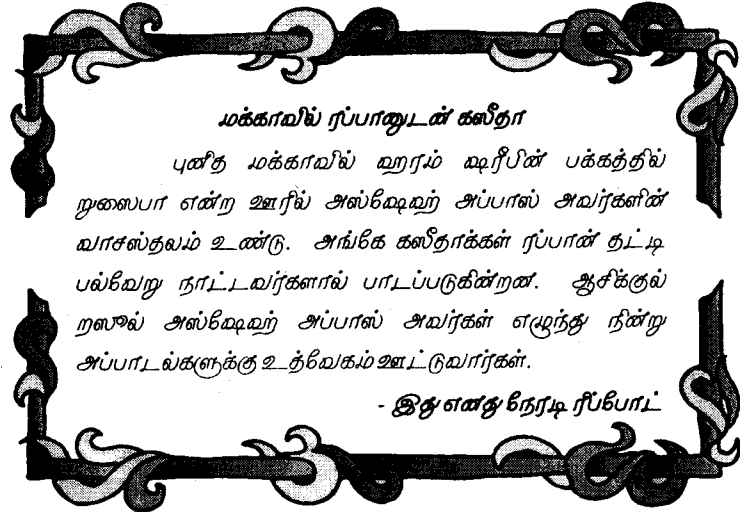 மக்காவில் ரப்பானுடன் கஸீதா
புனித மக்காவில் ஹரம் ஷரீபின் பக்கத்தில்
றுஸைபா என்ற ஊரில் அஸ்ஷேஹ் அப்பாஸ் அவர்களின்
வாசஸ்தலம் உண்டு. அங்கே கஸீதாக்கள் ரப்பான் தட்டி
பல்வேறு நாட்டவர்களால் பாடப்படுகின்றன. ஆசிக்குல்
றஸூல் அஸ்ஷேஹ் அப்பாஸ் அவர்கள் எழுந்து நின்று
அப்பாடல்களுக்கு உத்வேகம் ஊட்டுவார்கள்.
- இது எனது நேரடி ரிப்போட்